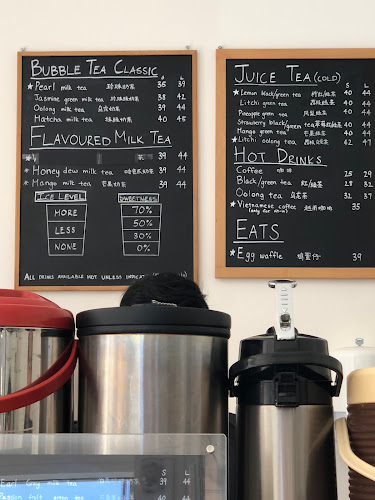 BUBBLE TEA CLASSIC
S L
★Pearl milk tea 珍珠奶茶 35 39
Jasmine green milk tea 38 42
Oolong milk tea 烏龍奶茶 39 44
Matcha milk tea 40 45
FLAVOURED MILK TEA
39 44
★Honey dew milk tea 39 44
★Mango milk tea 芒果奶茶 39 44
ICE LEVEL
MORE
LESS
NONE
SWEETNESS
70%
50%
30%
0%
ALL DRINKS AVAILABLE HOT UNLESS
JUICE TEA (COLD)
S L
★Lemon black/green tea 40 44
Litchi green tea 40 44
Pineapple green tea 40 44
Strawberry black/green tea 40 44
Mango green tea 40 44
★Litchi oolong tea 42 47
HOT DRINKS
Coffee 咖啡 25 29
Black/green tea 紅/綠茶 28 32
Oolong tea 烏龍茶 32 37
★Vietnamese coffee 越南咖啡 35
EATS
★Egg waffle 雞蛋仔 39
S L
Earl Grey milk tea 39 44
Passion fruit green tea 40 44